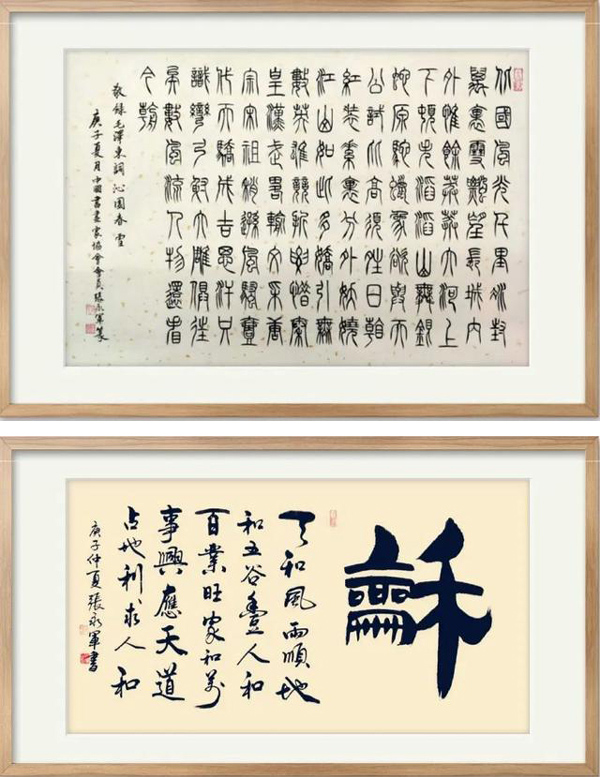 北國風光千里冰封
萬裏雪飄望長城內
外惟餘莽莽大河上
下頓失滔滔山舞銀
蛇原馳蠟象欲與天
公試比高須晴日看
紅裝素裹分外妖嬈
江山如此多嬌引無
數英雄競折腰惜秦
皇漢武略輸文采唐
宗宋祖稍遜風騷壹
代天驕成吉思汗只
識彎弓射大雕俱往
矣數風流人物還看
今朝
敬錄毛澤東詞沁園春雪
庚子夏月中國書畫家協會會員張永軍篆
龢
天和風雨順地
和五谷豐人和
百業旺家和萬
事興應天道
占地利求人和
庚子仲夏張永軍書